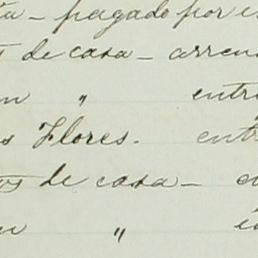 pagado por
de casa - arren
" entr
s Flores. entr
os de casa - e
n "